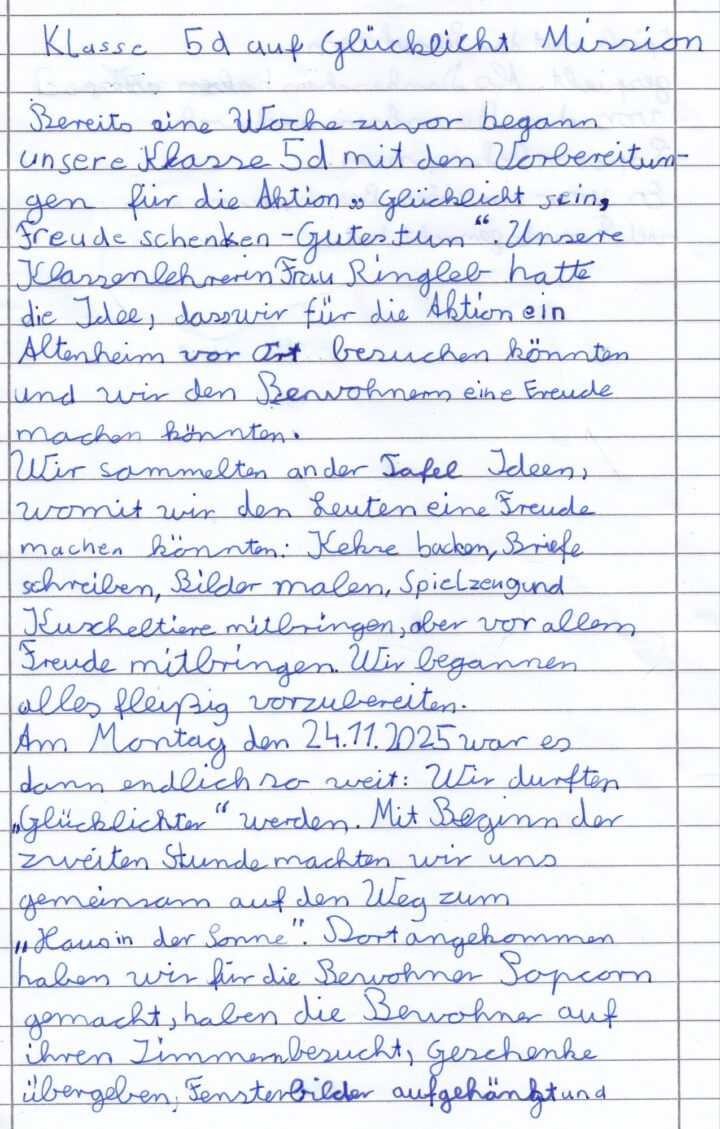 Klasse 5d auf Glücklicht Mission
Bereits eine Woche zuvor begann
unsere Klasse 5d mit den Vorbereitun-
gen für die Aktion „Glücklicht sein,
Freude schenken - Gutes tun“. Unsere
Klassenlehrerin Frau Ringleb hatte
die Idee, dass wir für die Aktion ein
Altenheim vor Ort besuchen könnten
und wir den Bewohnern eine Freude
machen könnten.
Wir sammelten an der Tafel Ideen,
womit wir den Leuten eine Freude
machen könnten: Kekse backen, Briefe
schreiben, Bilder malen, Spielzeug und
Kuscheltiere mitbringen, aber vor allem
Freude mitbringen. Wir begannen
alles fleißig vorzubereiten.
Am Montag den 24.11.2025 war es
dann endlich so weit: Wir durften
„Glücklichter“ werden. Mit Beginn der
zweiten Stunde machten wir uns
gemeinsam auf den Weg zum
„Haus in der Sonne“. Dort angekommen
haben wir für die Bewohner Popcorn
gemacht, haben die Bewohner auf
ihren Zimmern besucht, Geschenke
übergeben, Fensterbilder aufgehängt und